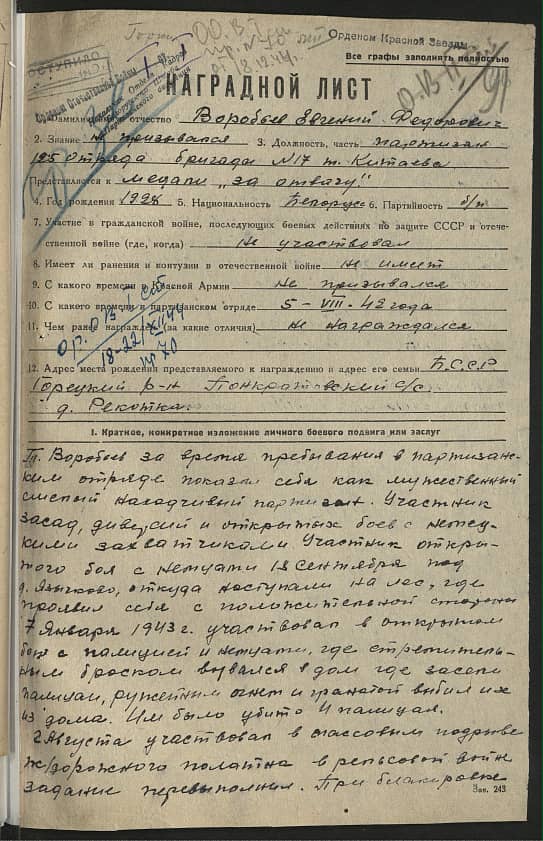 Орденом Красной Звезды
Все графы заполнять полностью
НАГРАДНОЙ ЛИСТ
отчество Воробьев Евгений Федорович
2. Звание не призывался 3. Должность, часть партизан
125 отряда бригада №17 т. Китаева
Представляется к медали „за отвагу"
4. Год рождения 1928 5. Национальность Белорус 6. Партийность б/п
7. Участие в гражданской войне, последующих боевых действиях по защите СССР и отече-
ственной войне (где, когда) не участвовал
8. Имеет ли ранения и контузии в отечественной войне не имеет
9. С какого времени в Красной Армии не призывался
10. С какого времени в партизанском отряде 5 - VIII - 42 года
11. Чем ранее награжден (за какие отличия) не награждался
12. Адрес места рождения представляемого к награждению и адрес его семьи Б.С.С.Р
Горецкий р-н Понкратовский с/с.
д. Рекотка.
I. Краткое, конкретное изложение личного боевого подвига или заслуг
Воробьев за время пребывания в партизанс-
ком отряде показал себя как мужественный
смелый находчивый партизан. Участник
засад, диверсий и открытых боев с немец-
кими захватчиками. Участник откры-
того боя с немцами 18 сентября под
д. Языково, откуда наступали на лес, где
проявил себя с положительной стороны
7 Января 1943 г. участвовал в открытом
бою с полицией и немцами, где стремитель-
ным броском ворвался в дом где засели
полицаи, ружейным огнем и гранатой выбил их
из дома. Им было убито 4 полицая.
2 Августа участвовал в массовом подрыве
ж/дорожного полотна в рельсовой войне
задание перевыполнил. При блокировке
Зак. 243